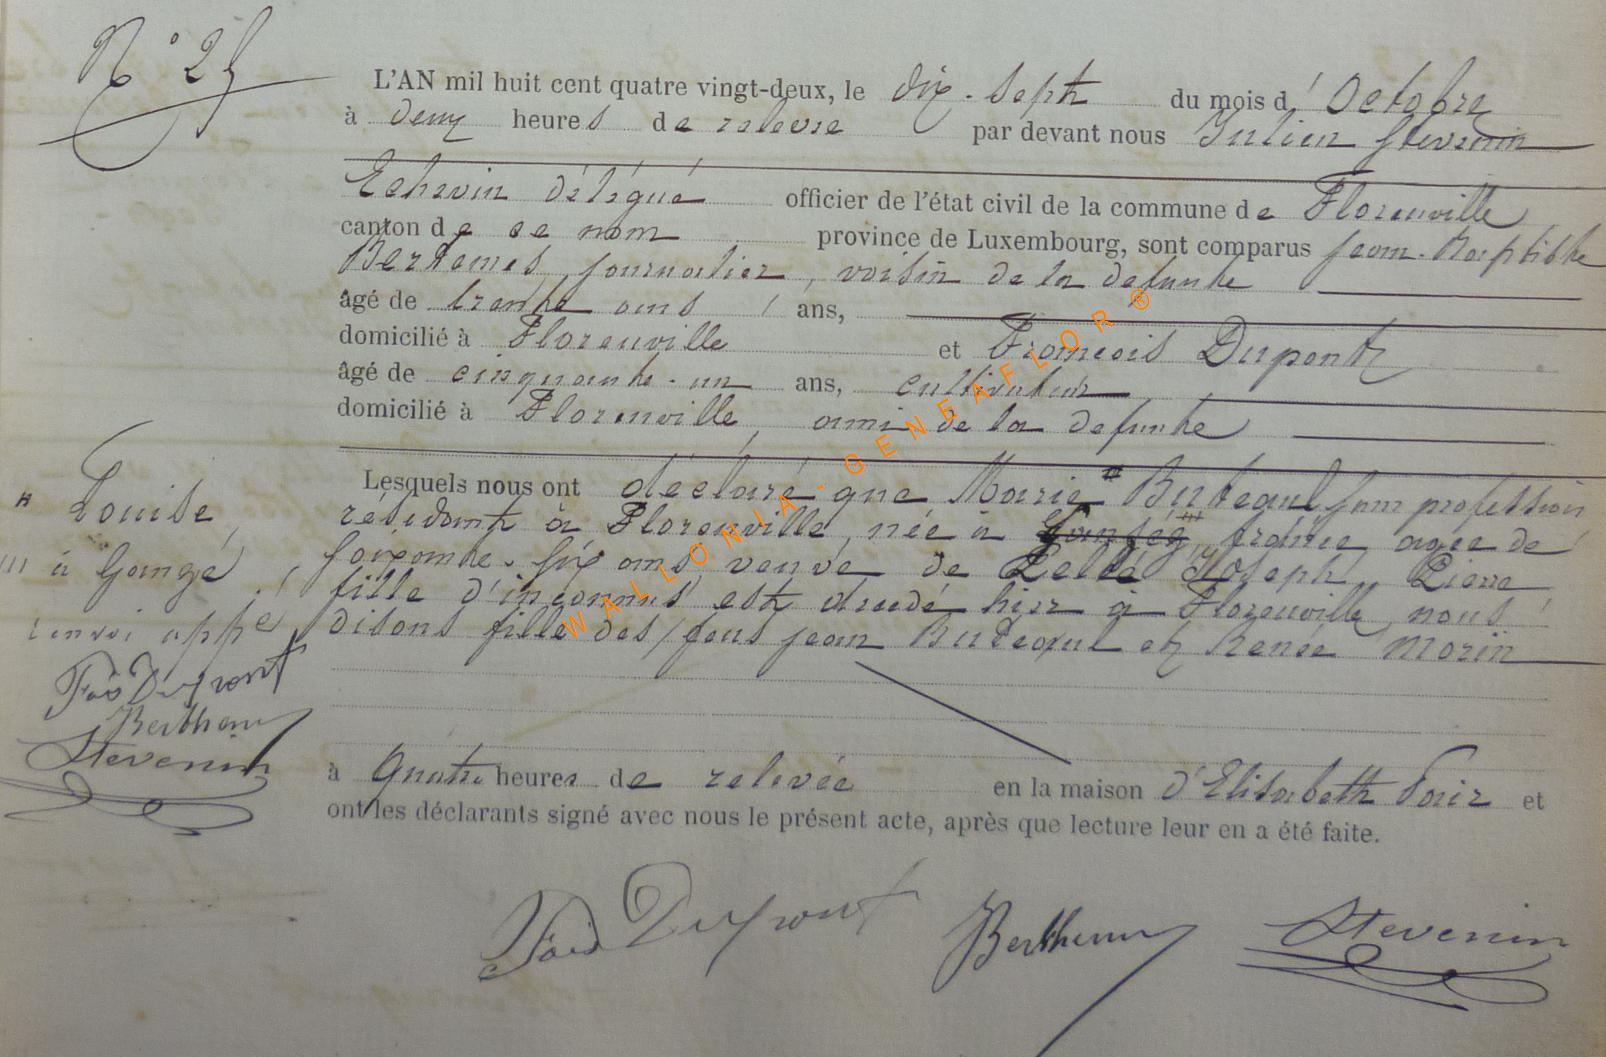 N° 25
L'AN mil huit cent quatre vingt-deux, le dix-sept du mois d'Octobre
à deux heures de relevée par devant nous Julien Stevenin
Echevin délégué officier de l'état civil de la commune de Florenville
canton de ce nom province de Luxembourg, sont comparus Jean-Baptiste
Bertemes, journalier, voisin de la défunte
âgé de trente ans, ans,
domicilié à Florenville et François Dupont
âgé de cinquante-un ans, cultivateur
domicilié à Florenville, ami de la défunte
Lesquels nous ont déclaré que Marie # Buteaul sans profession
résidant à Florenville, née à France, agée de
soixante-six ans, veuve de Joseph Pierre
fille d'inconnus est décédé hier à Florenville, nous
disons fille des feus Jean Buteaul et Renée Morin
à quatre heures de relevée en la maison d'Elisabeth et
ont les déclarants signé avec nous le présent acte, après que lecture leur en a été faite.
# Louise,
III à Gangé,
renvoi appé
Fois Dupont
Berthemes
Stevenin
Fois Dupont Berthemes Stevenin
WALLONIA-GENEAFLOR®